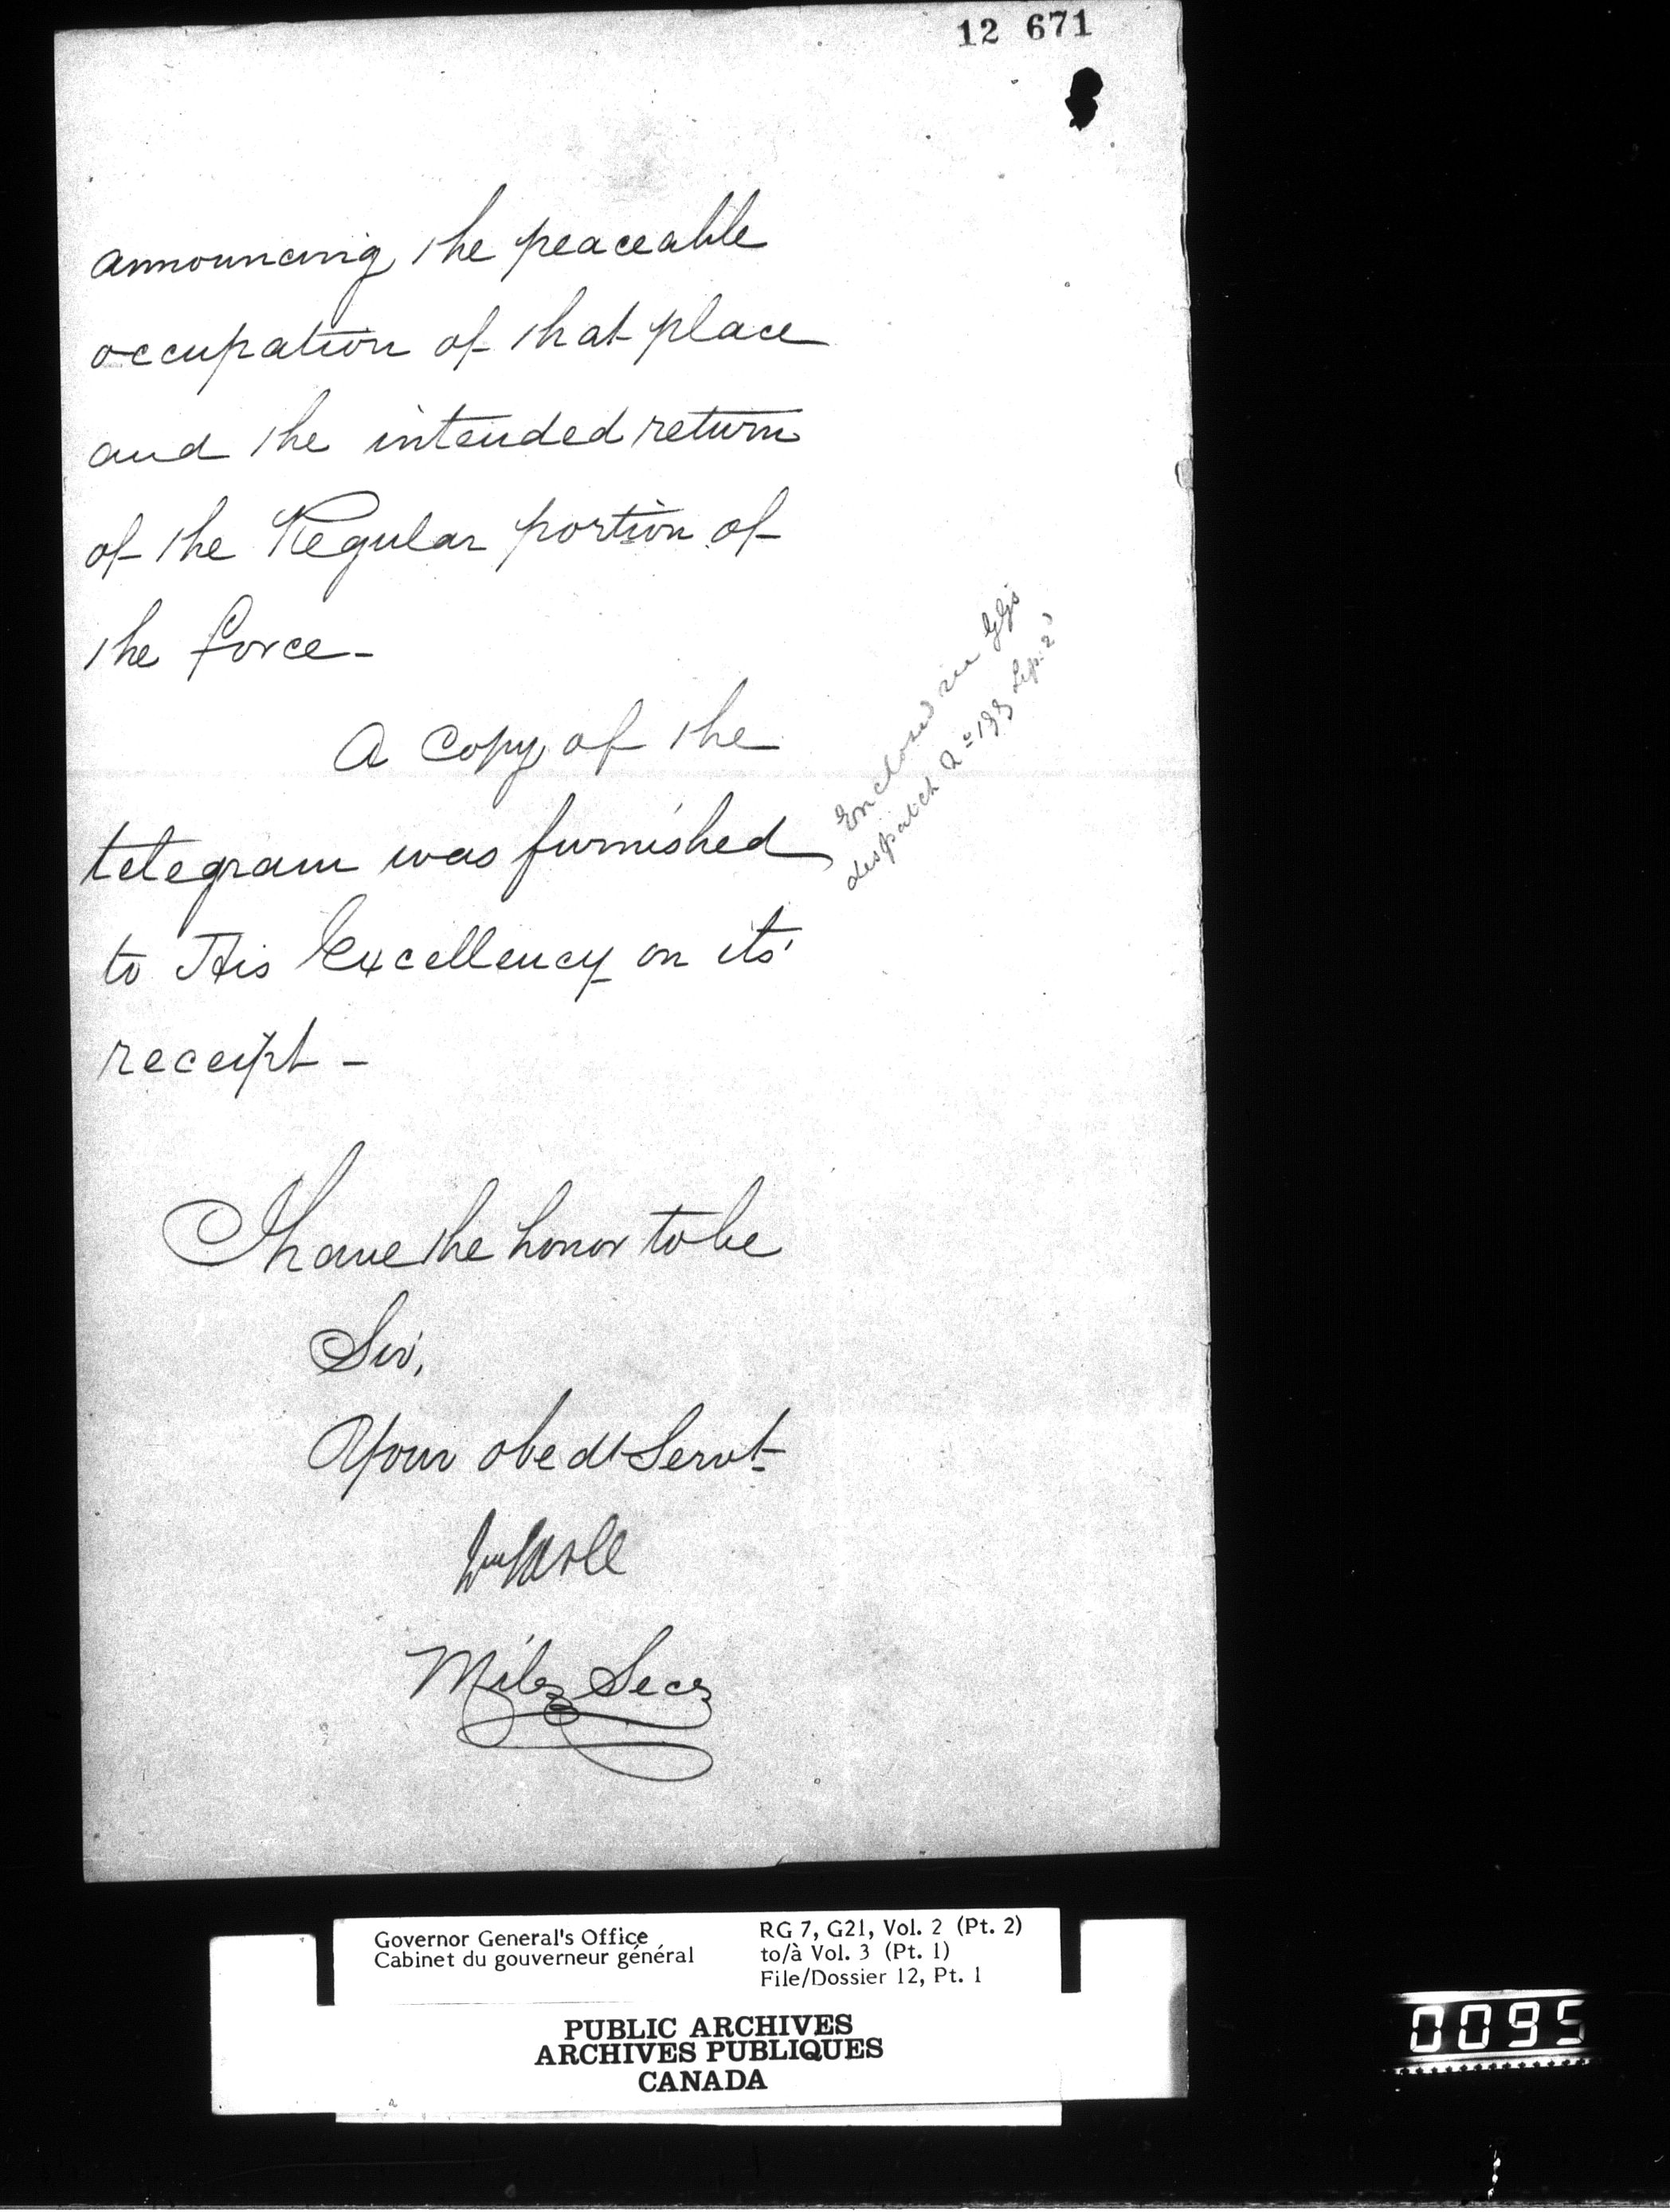 12 671
announcing the peaceable
occupation of that place
and the intended return
of the Regular portion of
the force-
A copy of the
telegram was furnished
to His Excellency on its'
receipt-
Enclosed in GG's
despatch 199 Sep. 2
I have the honor to be
Sir,
Your obedt Servt
Mily Secy
Governor General's Office
Cabinet du gouverneur général
RG 7, G21, Vol. 2 (Pt. 2)
to/à Vol. 3 (Pt. 1)
File/Dossier 12, Pt. 1
PUBLIC ARCHIVES
ARCHIVES PUBLIQUES
CANADA
0095